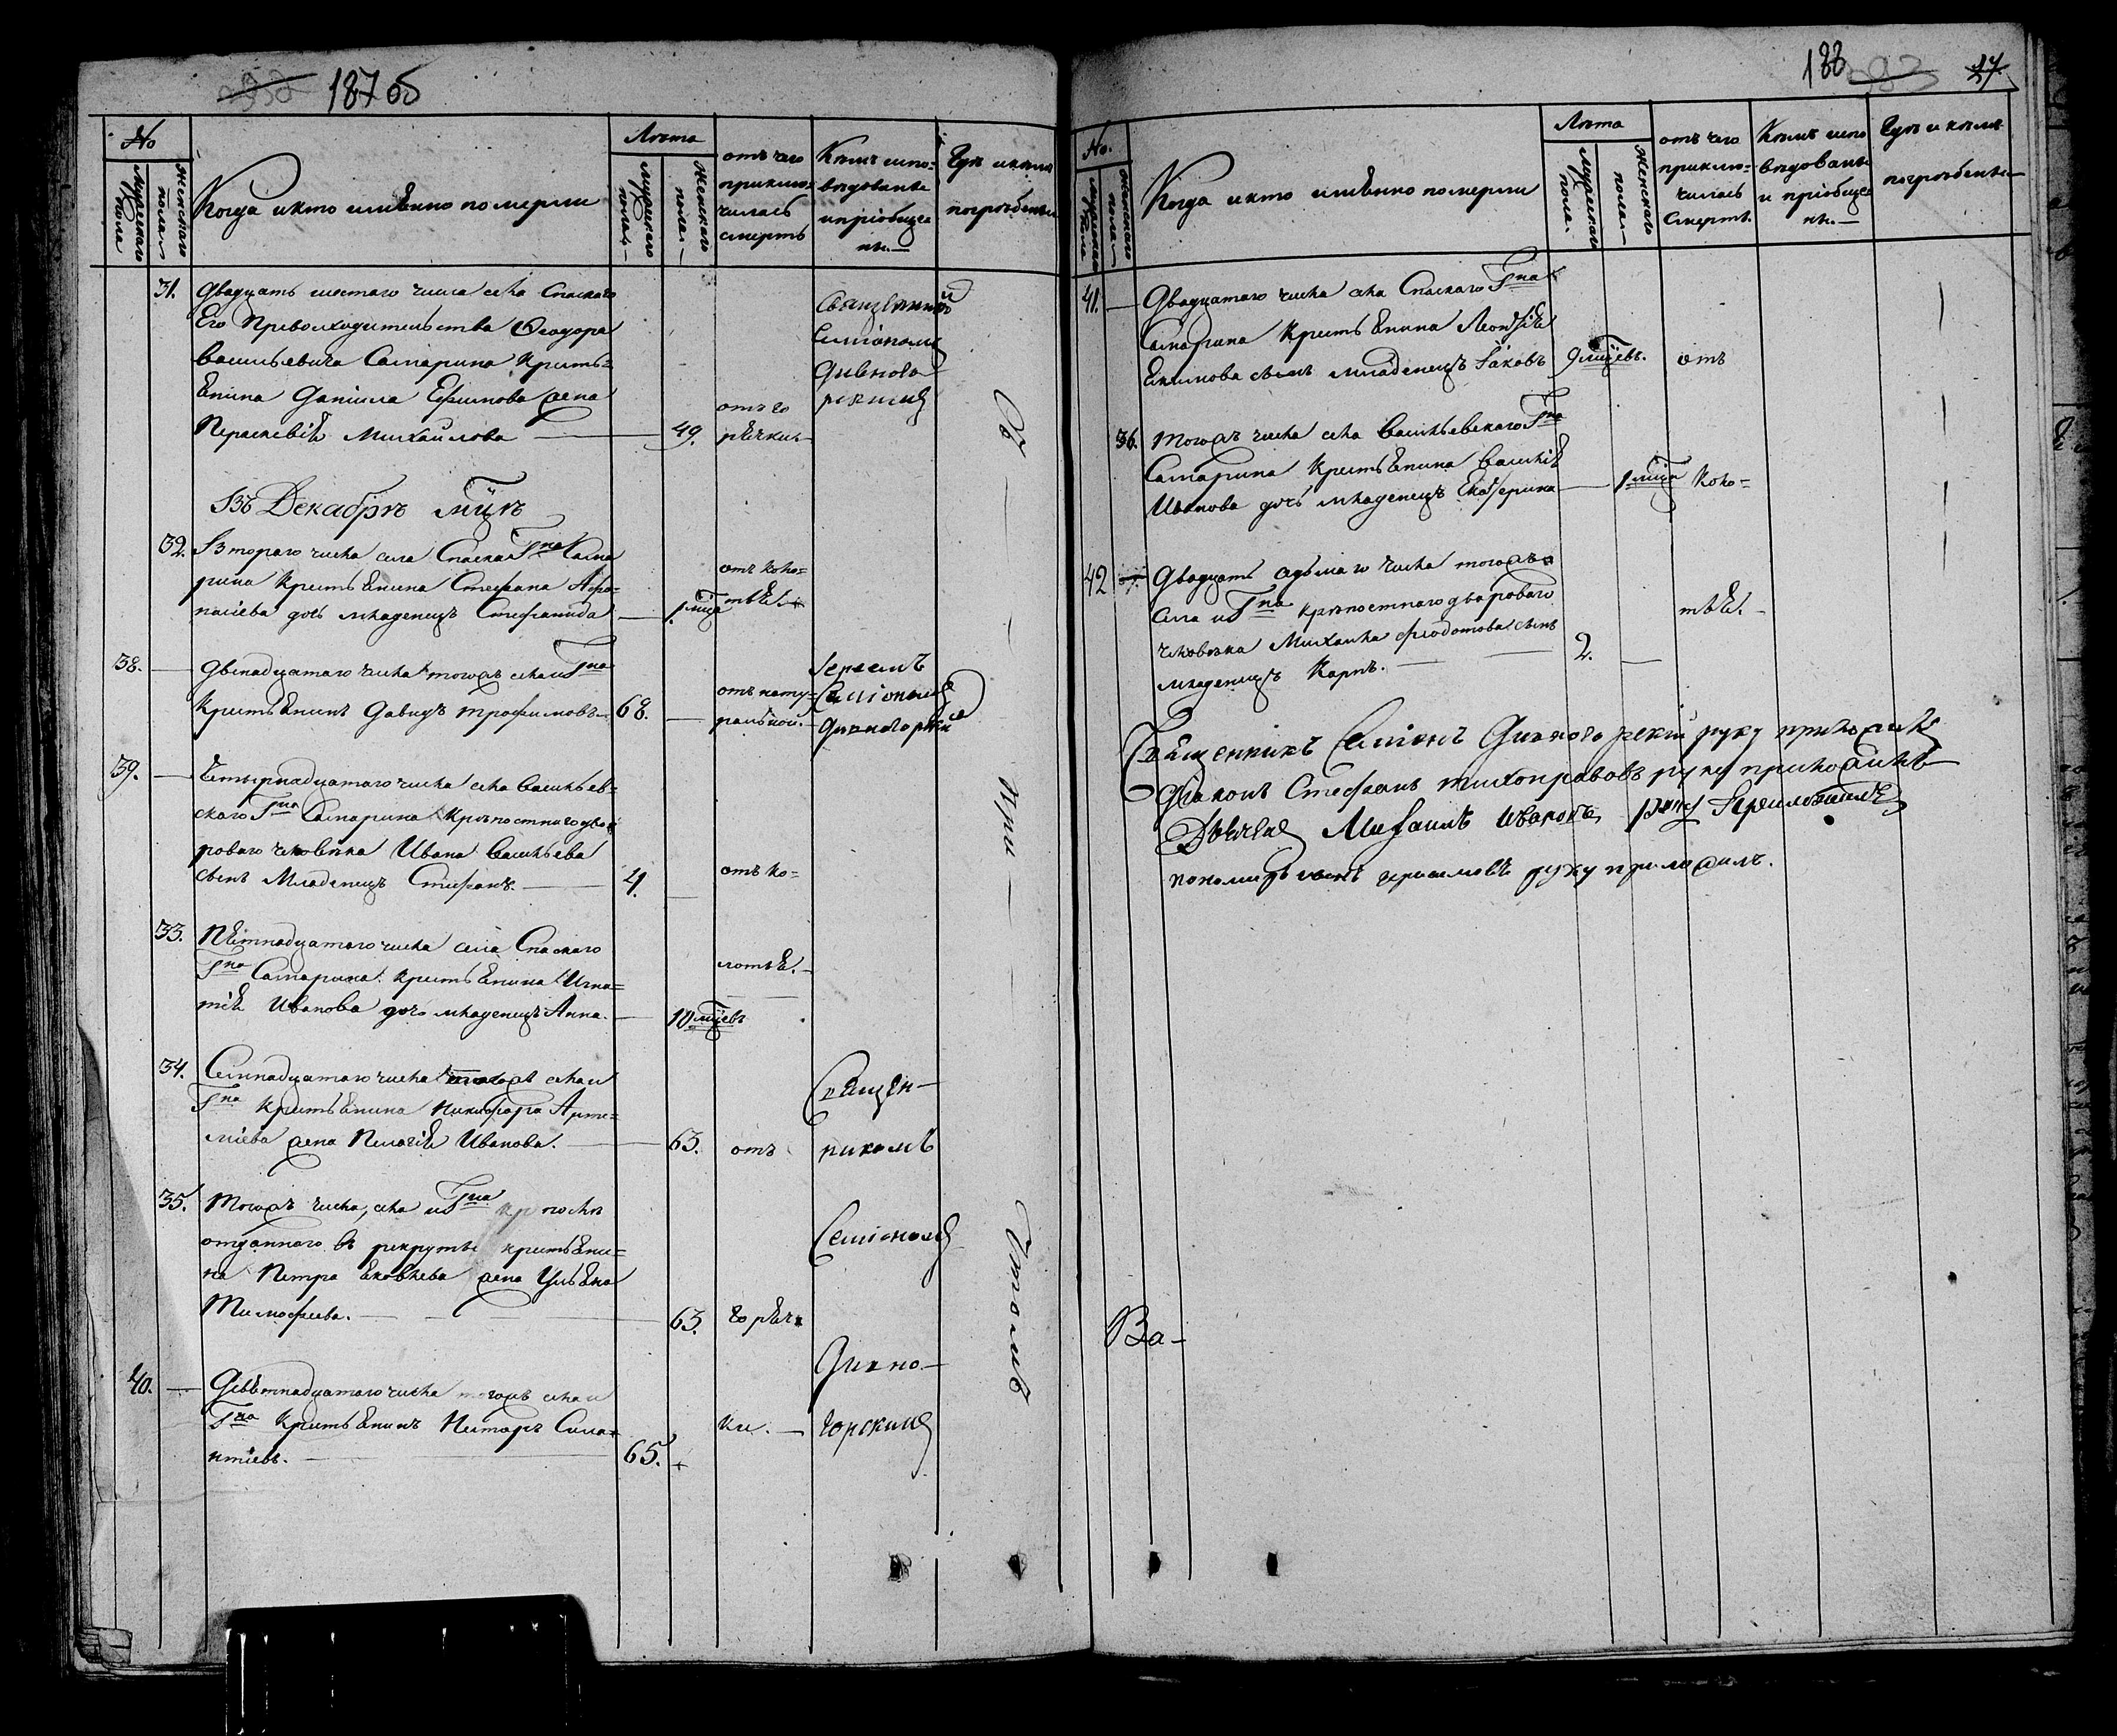 187 об
No
Мужескаго пола
Женскаго пола
Когда и кто имянно померли
Лѣта
Мужескаго пола
Женскаго пола
отъ чего приклю-
чилась
смерть
Кѣмъ испо-
вѣдованы
и пріобще
ны.
Гдѣ и кѣмъ
погребены
31. Двадцать шестаго числа села Спаскаго
Его Превосходительства Ѳеодора
Васильевича Самарина Крестья=
янина Даніила Ефимова жена
Параскевія Михайлова — 49.
отъ го
рячки
Священником
Симіономъ
Дивногорскимъ
Въ Декабрѣ мцѣ
32. Втораго числа села Спаскаго Гна Сама
рина Крестьянина Стефана Афа-
насіева дочь младенецъ Стефанида — 1 мца
отъ коко-
тья.
38. — Двенадцатаго числа тогожъ села и Гна
Крестьянинъ Давидъ Трофимовъ 68. —
отъ нату-
ральной.
Іереемъ
Симіономъ
Дивногорским
39. — Четырнадцатаго числа села Васильев-
скаго Гна Самарина Крѣпостнаго дво
роваго человѣка Ивана Васильева
сынъ Младенецъ Стефанъ. — 4. —
отъ ко=
33. Пятнадцатаго числа села Спаскаго
Гна Самарина Крестьянина Игна=
тія Иванова дочь младенецъ Анна. — 10 мцевъ
котья.
34. Семнадцатаго числа тогожъ села и
Гна Крестьянина Никифора Арте=
міева жена Пелагія Иванова. — 63. отъ
Священ-
никомъ
35. Тогожъ числа, села и Гна
отданнаго въ рекруты крестьяни=
на Петра Яковлева жена Ульяна
Тимофеева. — 63. горяч
Симіономъ
40. — Девятнадцатаго числа тогожъ села и
Гна Крестьянинъ Несторъ Сила
нтіевъ. — 65.
ки. —
Дивно-
горскимъ
При
188
27
No.
Женскаго пола
Когда и кто имянно померли
Лѣта
Мужескаго пола.
Женскаго пола
отъ чего
приклю-
чилась
Смерть.
Кѣмъ испо
вѣдованы
и пріобще
ны.
Гдѣ и кѣмъ
погребены
41. — Двадцатаго числа села Спаскаго Гна
Самарина Крестьянина Леонтія
Екимова сынъ младенецъ Іаковъ 9 мцевъ. отъ
36. Тогожъ числа села Васильевскаго Гна
Самарина Крестьянина Василія
Иванова дочь младенецъ Екатерина — 1 мца коко=
42 — Двадцать седьмаго числа тогожъ
села и Гна крѣпостнаго двороваго
человѣка Михаила Федотова сынъ
младенецъ Карпъ. — 2. —
тья.
Священникъ Симіонъ Дивногорскій руку приложилъ
Діаконъ Стефанъ Тихонравовъ руку приложилъ
Дьячекъ Михаилъ Ивановъ руку Приложилъ
пономарь руку приложилъ.
Ва-